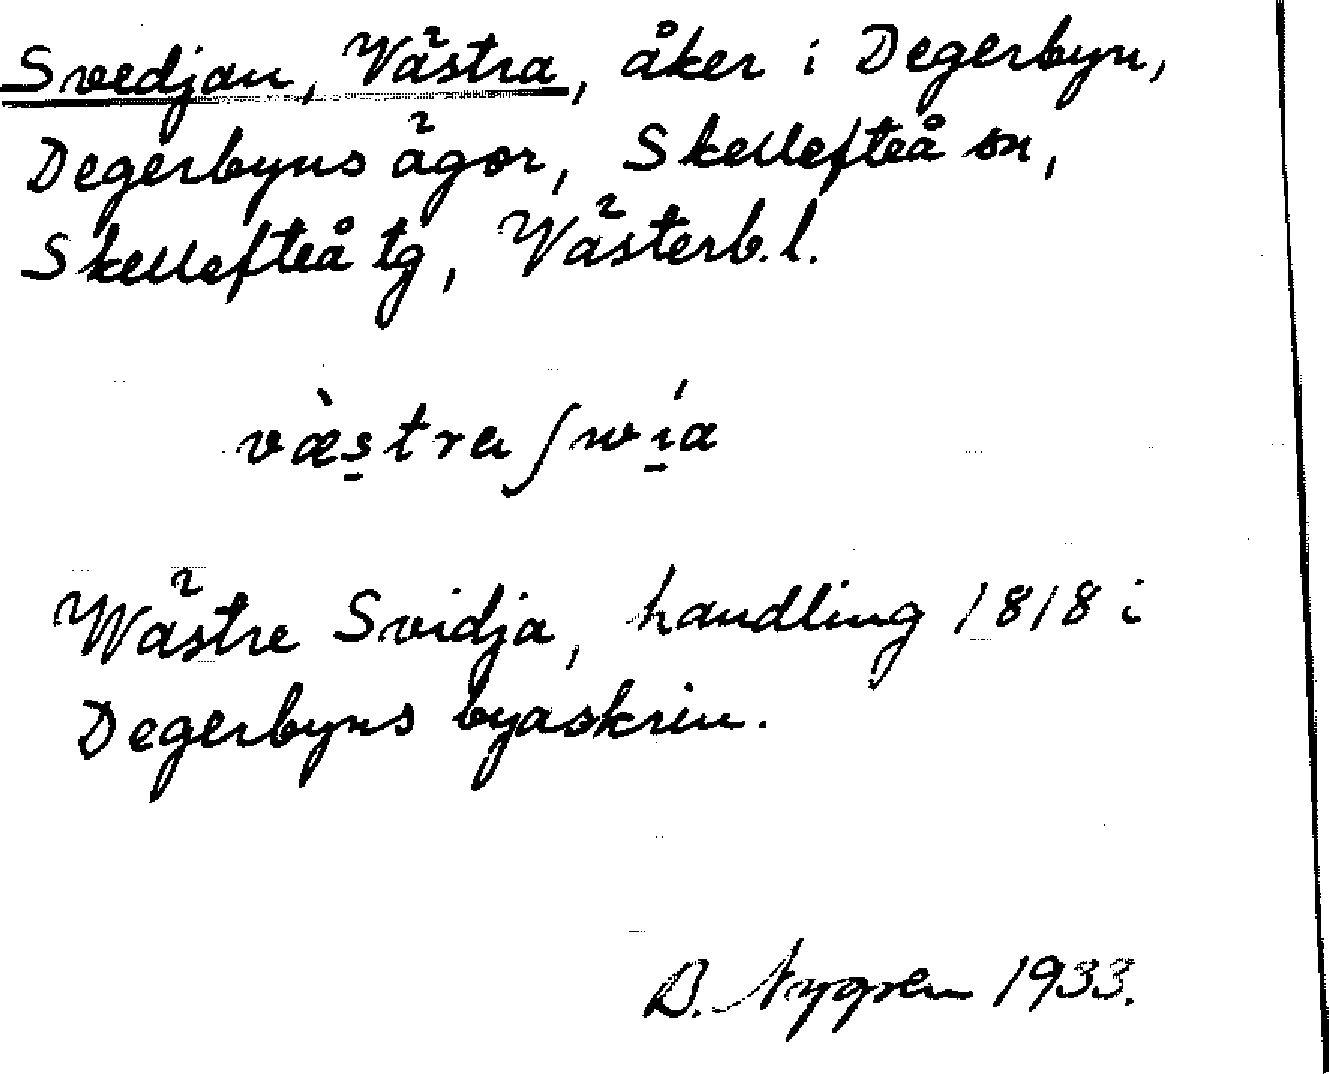 Svedjan, Västra, åker i Degerbyn,
Degerbyns ägor, Skellefteå sn,
Skellefteå tg, Västerb. l.
væ̀s̱tra ʃwí̱a
Wästre Svidja, handling 1818 i
Degerbyns byaskrin.
B. Nygren 1933.